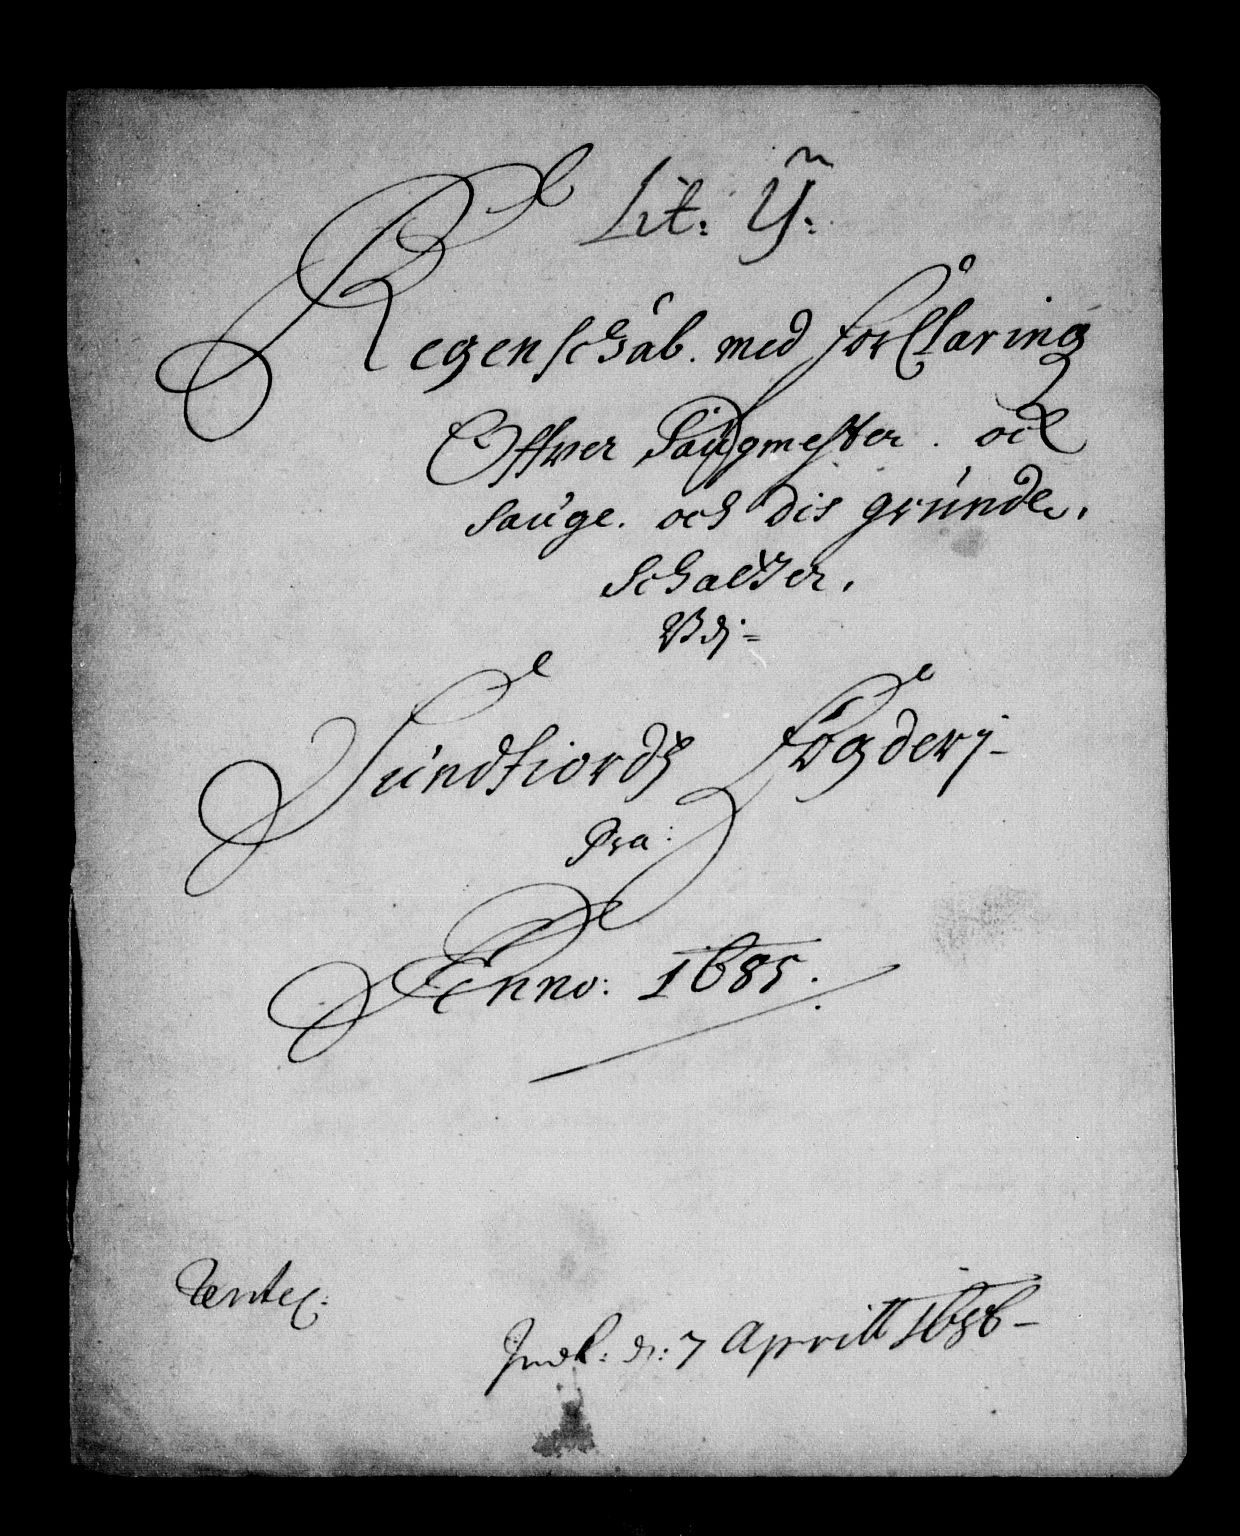 Lit: Ÿ:
Regenschab. med forklaring
Offver Saugmester. och
Sauge. och dis grunde.
Schatter.
Vdj=
Sundfiords fogderj-
Pra:
Anno: 1685.
Indl: d: 7 Aprill 1686-